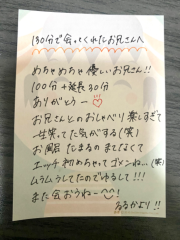 130分で会ってくれたお兄さんへ
めちゃめちゃ優しいお兄さん!!
100分+延長30分
ありがとう〜
お兄さんとのおしゃべり楽しすぎて
一生笑ってた気がする(笑)
お風呂たまるのまたなくて
エッチ初めちゃってゴメンね…(笑)
ムラムラしてたのでゆるして!!!
また会おうね〜!
るるかより!!